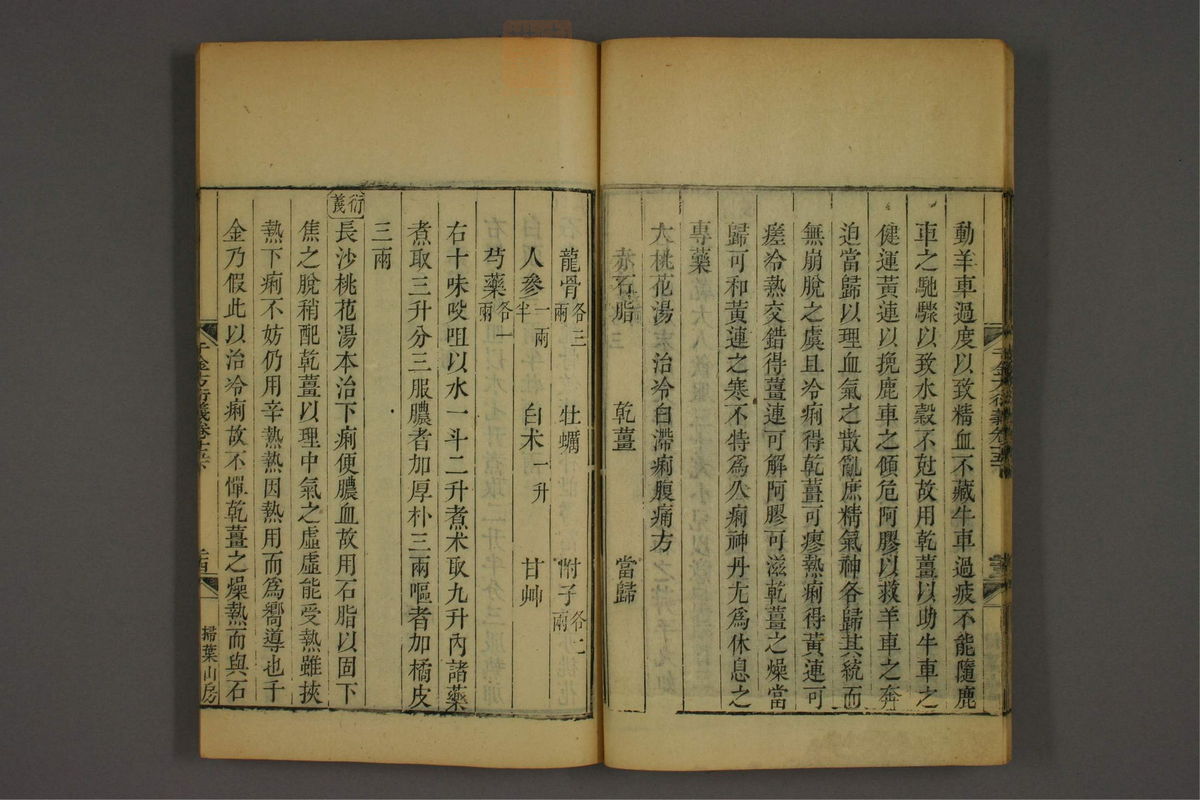 動羊車過度以致精血不藏牛車過疲不能隨鹿
車之馳驟以致水穀不尅故用乾薑以助牛車之
健運黃連以挽鹿車之傾危阿膠以救羊車之奔
迫當歸以理血氣之散亂庶精氣神各歸其統而
無崩脫之虞且冷痢得乾薑可瘳熱痢得黃連可
瘥冷熱交錯得薑連可解阿膠可滋乾薑之燥當
歸可和黃連之寒不特爲久痢神丹尢爲休息之
專藥
大桃花湯 治冷白滯痢腹痛方
赤石脂 乾薑 當歸
龍骨各三兩 牡蠣 附子各二兩
人參一兩半 白朮一升 甘艸
芍藥各一兩
右十味㕮咀以水一斗二升煮朮取九升內諸藥
煮取三升分三服膿者加厚朴三兩嘔者加橘皮
三兩
衍義
長沙桃花湯本治下痢便膿血故用石脂以固下
焦之脫稍配乾薑以理中氣之虛虛能受熱雖挾
熱下痢不妨仍用辛熱熱因熱用而爲嚮導也千
金乃假此以治冷痢故不憚乾薑之燥熱而與石
千金方衍義卷十五下
掃葉山房